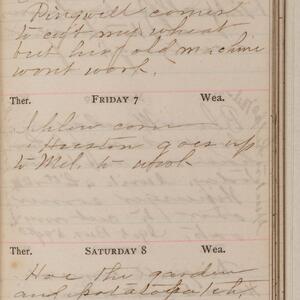 Ringwell comes
to cut my wheat
but his old machine
wont work.
Ther. FRIDAY 7 Wea.
I plow corn
Houston goes up
to Mel. to work
Ther. SATURDAY 8 Wea.
Hoe the garden
and potato patch